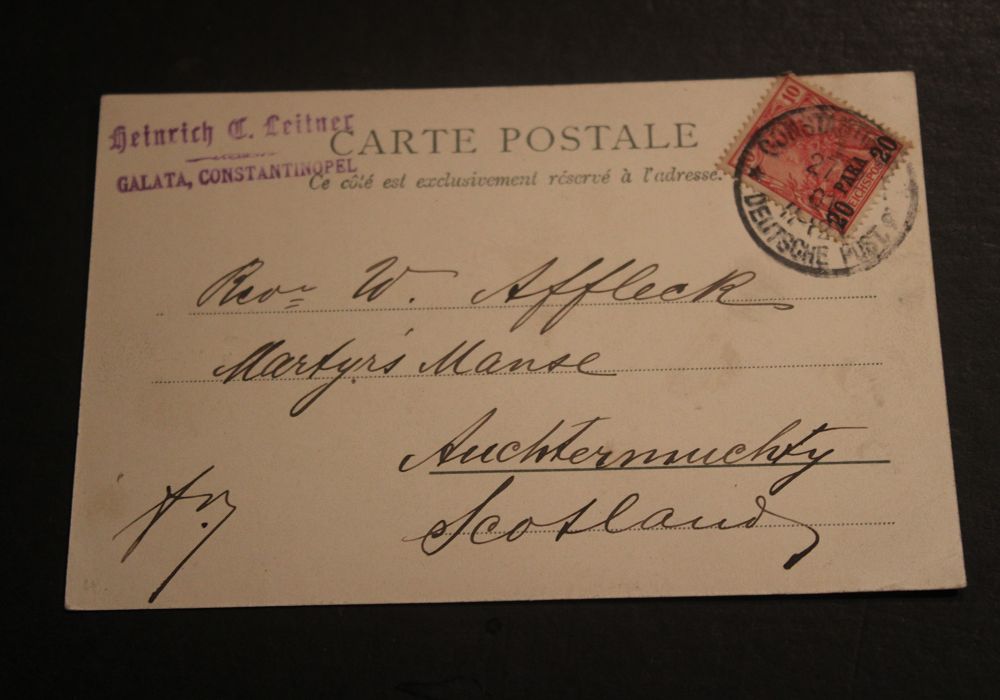 Heinrich C. Leitner
GALATA, CONSTANTINOPEL
CARTE POSTALE
Ce côté est exclusivement réservé à l'adresse.
10
20 PARA 20
REICHSPOST
27
DEUTSCHE POST
Revr W. Affleck
Martyrs Manse
Auchtermuchty
Scotland